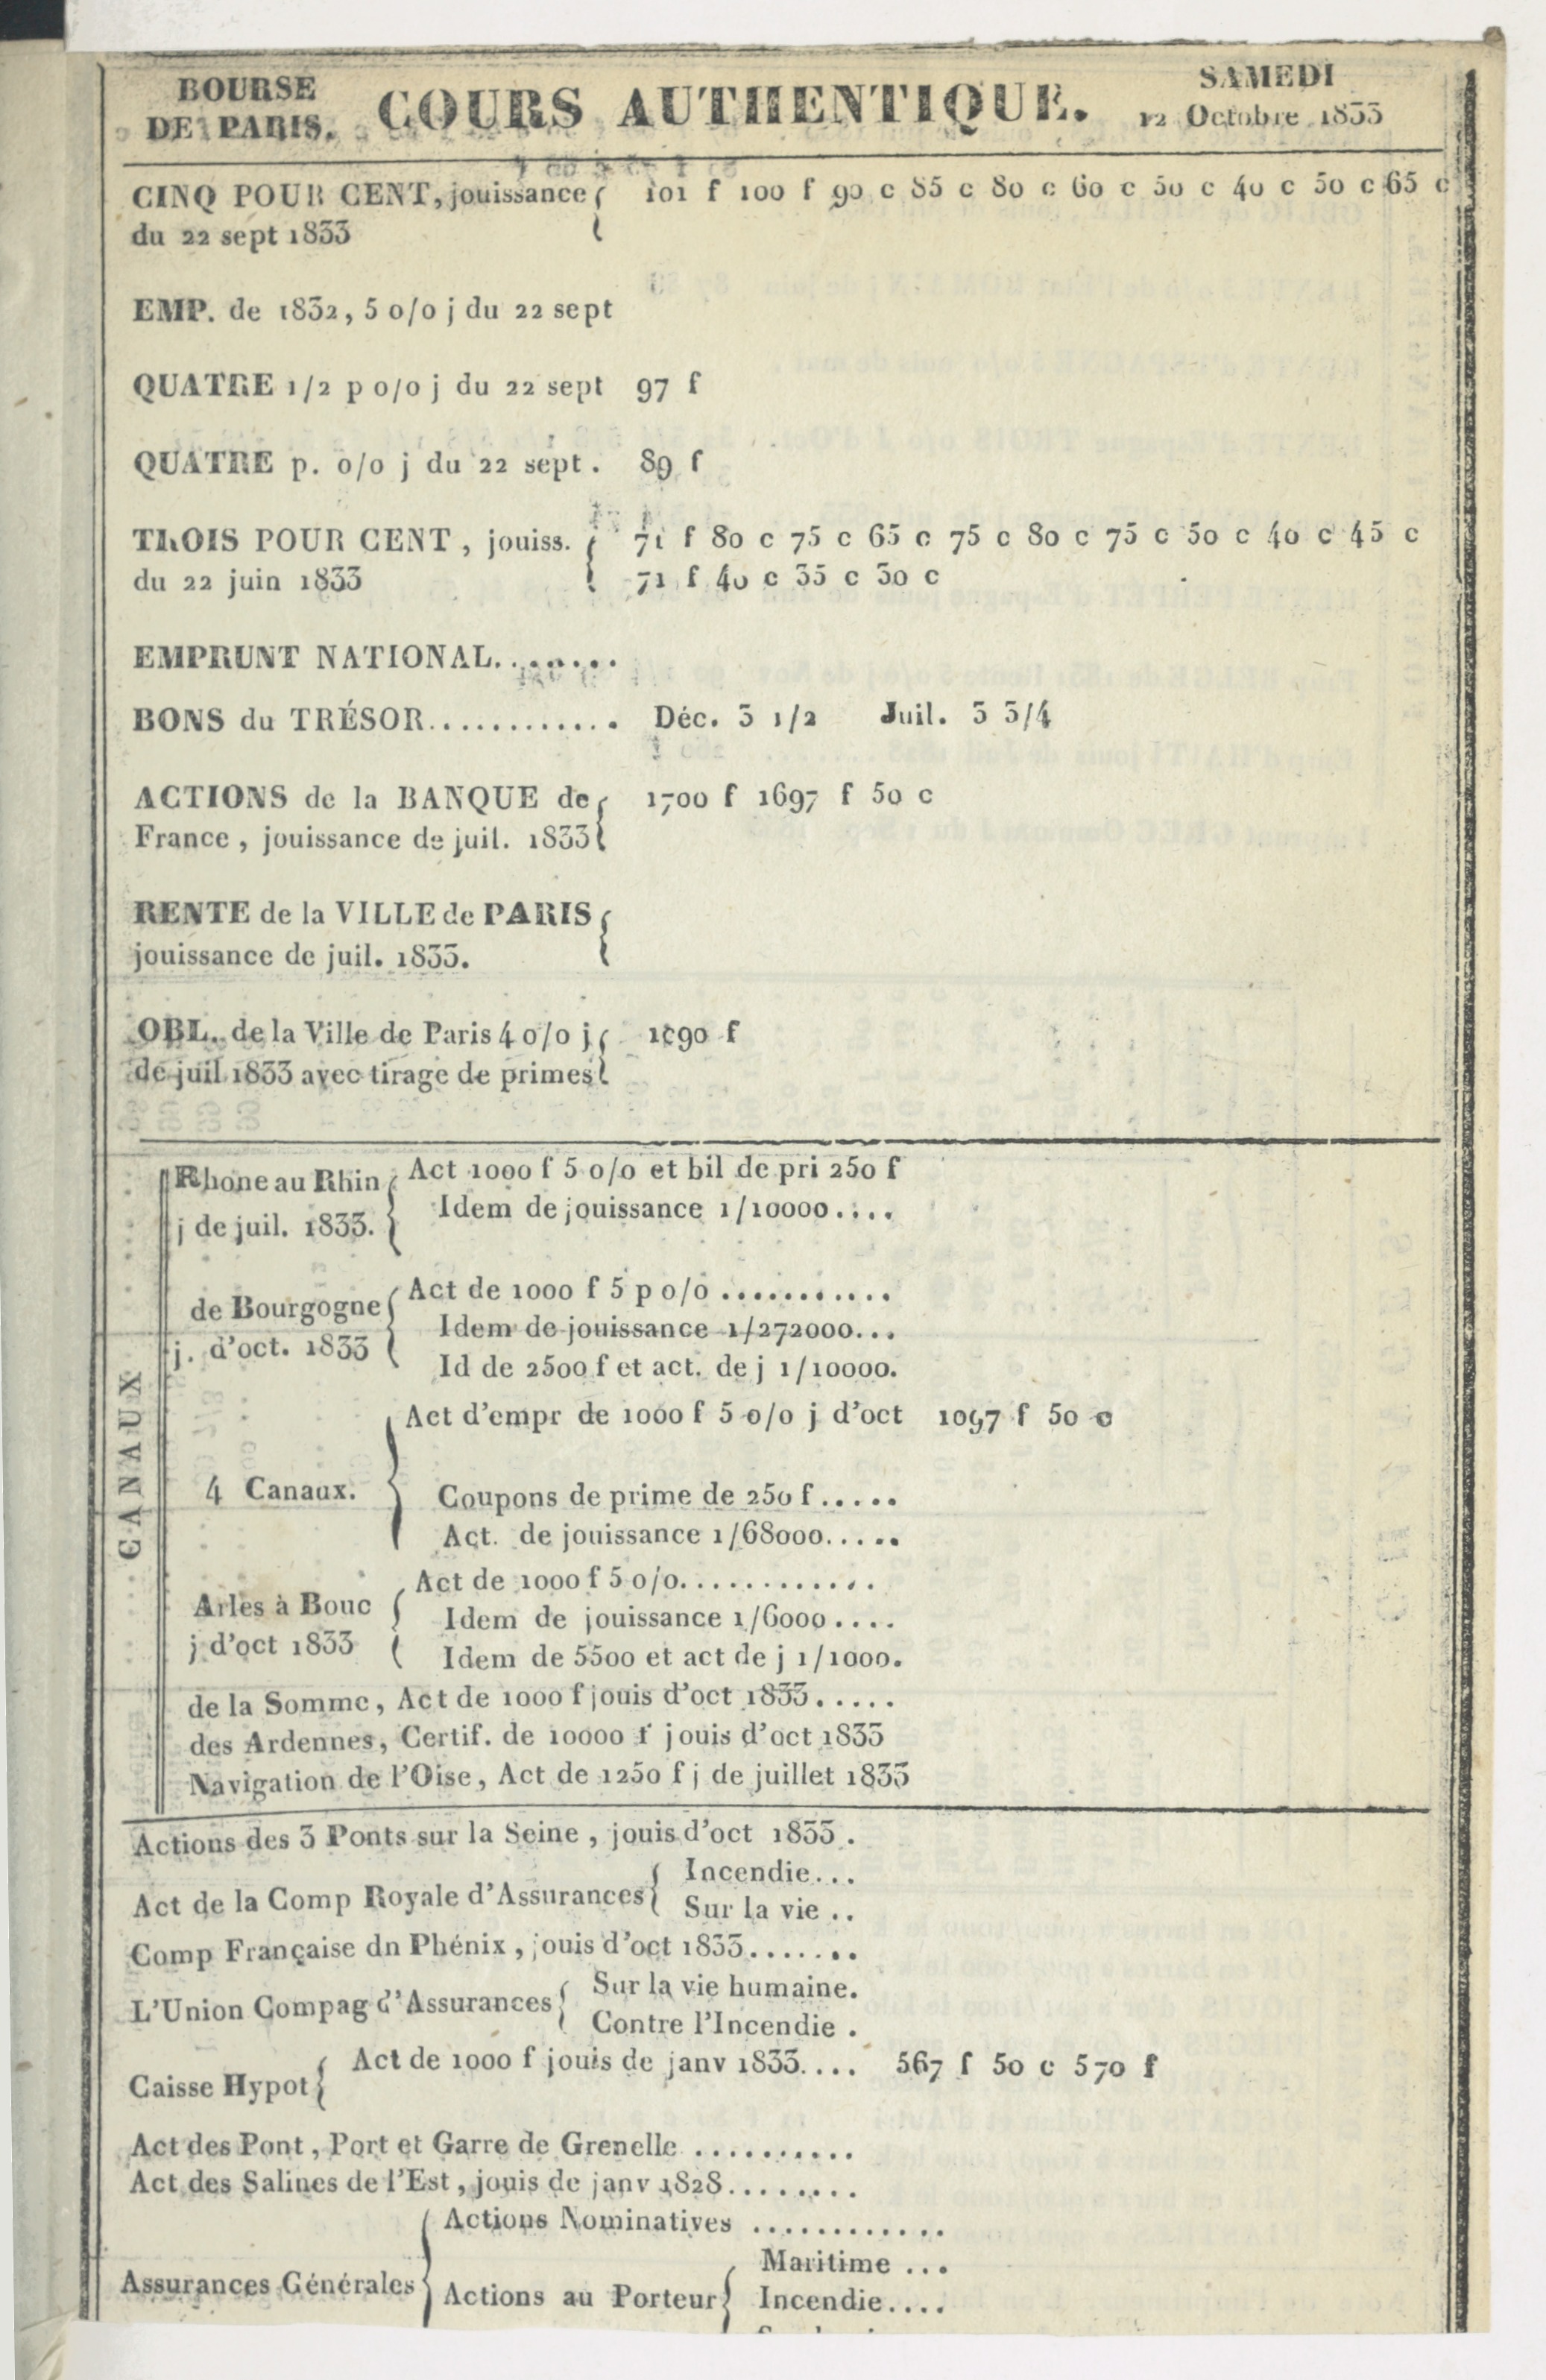 BOURSE
DE PARIS.
COURS AUTHENTIQUE.
SAMEDI
12 Octobre 1833
CINQ POUR CENT, jouissance 101 f 100 f 90 c 85 c 80 c 60 c 50 c 40 c 50 c 65 c
du 22 sept 1833
EMP. de 1832, 5 o/o j du 22 sept
QUATRE 1/2 p o/o j du 22 sept 97 f
QUATRE p. o/o j du 22 sept. 89 f
TROIS POUR CENT, jouiss. 71 f 80 c 75 c 65 c 75 c 80 c 75 c 50 c 40 c 45 c
du 22 juin 1833 71 f 40 c 35 c 30 c
EMPRUNT NATIONAL........
BONS du TRÉSOR............ Déc. 3 1/2 Juil. 3 3/4
ACTIONS de la BANQUE de 1700 f 1697 f 50 c
France, jouissance de juil. 1833
RENTE de la VILLE de PARIS
jouissance de juil. 1833.
OBL. de la Ville de Paris 4 o/o j 1290 f
de juil 1833 avec tirage de primes
CANAUX
Rhone au Rhin
j de juil. 1833.
Act 1000 f 5 o/o et bil de pri 250 f
Idem de jouissance 1/10000....
de Bourgogne
j. d'oct. 1833
Act de 1000 f 5 p o/o ...........
Idem de jouissance 1/272000...
Id de 2500 f et act. de j 1/10000.
4 Canaux.
Act d'empr de 1000 f 5 o/o j d'oct 1097 f 50 c
Coupons de prime de 250 f.....
Act. de jouissance 1/68000.....
Arles à Bouc
j d'oct 1833
Act de 1000 f 5 o/o............
Idem de jouissance 1/6000....
Idem de 5500 et act de j 1/1000.
de la Somme, Act de 1000 f jouis d'oct 1833.....
des Ardennes, Certif. de 10000 f jouis d'oct 1833
Navigation de l'Oise, Act de 1250 f j de juillet 1833
Actions des 3 Ponts sur la Seine, jouis d'oct 1833.
Act de la Comp Royale d'Assurances
Incendie...
Sur la vie ..
Comp Française dn Phénix, jouis d'oct 1833.......
L'Union Compag d'Assurances
Sur la vie humaine.
Contre l'Incendie .
Caisse Hypot
Act de 1000 f jouis de janv 1833.... 567 f 50 c 570 f
Act des Pont, Port et Garre de Grenelle ..........
Act des Salines de l'Est, jouis de janv 1828........
Assurances Générales
Actions Nominatives ............
Actions au Porteur
Maritime ...
Incendie....